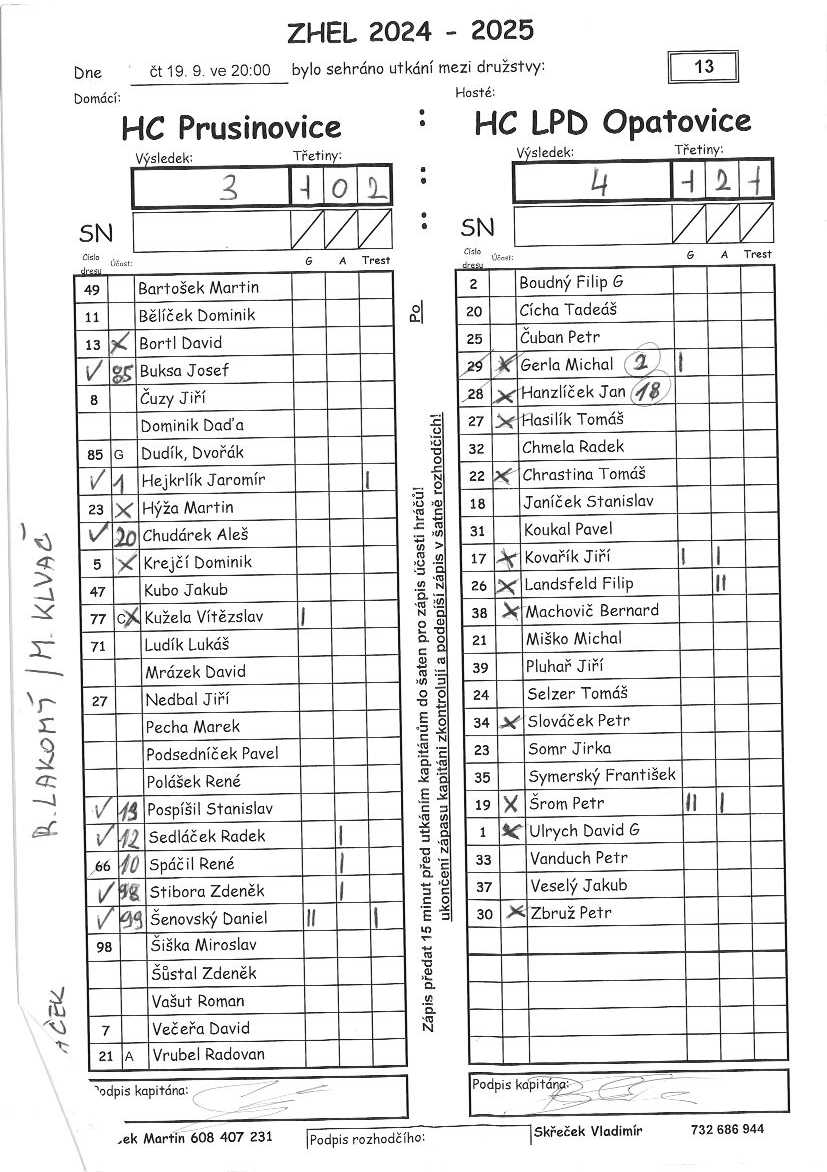 ZHEL 2024 - 2025
Dne čt 19. 9. ve 20:00 bylo sehráno utkání mezi družstvy: 13
Domácí: Hosté:
HC Prusinovice : HC LPD Opatovice
Výsledek: Třetiny: Výsledek: Třetiny:
3 1 0 2 : 4 1 2 1
SN : SN
Číslo dresu Účast: G A Trest Číslo dresu Účast: G A Trest
49 Bartošek Martin
11 Bělíček Dominik
13 X Bortl David
✓ 85 Buksa Josef
8 Čuzy Jiří
Dominik Daďa
85 G Dudík, Dvořák
✓ 1 Hejkrlík Jaromír |
23 X Hýža Martin
✓ 20 Chudárek Aleš
5 X Krejčí Dominik
47 Kubo Jakub
77 C X Kužela Vítězslav |
71 Ludík Lukáš
Mrázek David
27 Nedbal Jiří
Pecha Marek
Podsedníček Pavel
Polášek René
✓ 19 Pospíšil Stanislav
✓ 12 Sedláček Radek |
66 10 Spáčil René |
✓ 98 Stibora Zdeněk |
✓ 99 Šenovský Daniel || |
98 Šiška Miroslav
Šůstal Zdeněk
Vašut Roman
7 Večeřa David
21 A Vrubel Radovan
Po
Zápis předat 15 minut před utkáním kapitánům do šaten pro zápis účasti hráčů!
ukončení zápasu kapitáni zkontrolují a podepíší zápis v šatně rozhodčích!
2 Boudný Filip G
20 Cícha Tadeáš
25 Čuban Petr
29 X Gerla Michal 2 |
28 X Hanzlíček Jan 18
27 X Hasilík Tomáš
32 Chmela Radek
22 X Chrastina Tomáš
18 Janíček Stanislav
31 Koukal Pavel
17 X Kovařík Jiří | |
26 X Landsfeld Filip ||
38 X Machovič Bernard
21 Miško Michal
39 Pluhař Jiří
24 Selzer Tomáš
34 X Slováček Petr
23 Somr Jirka
35 Symerský František
19 X Šrom Petr || |
1 X Ulrych David G
33 Vanduch Petr
37 Veselý Jakub
30 X Zbruž Petr
R. LAKOMÝ / M. KLVAČ
Podpis kapitána: Podpis kapitána:
ek Martin 608 407 231 Podpis rozhodčího: Skřeček Vladimír 732 686 944